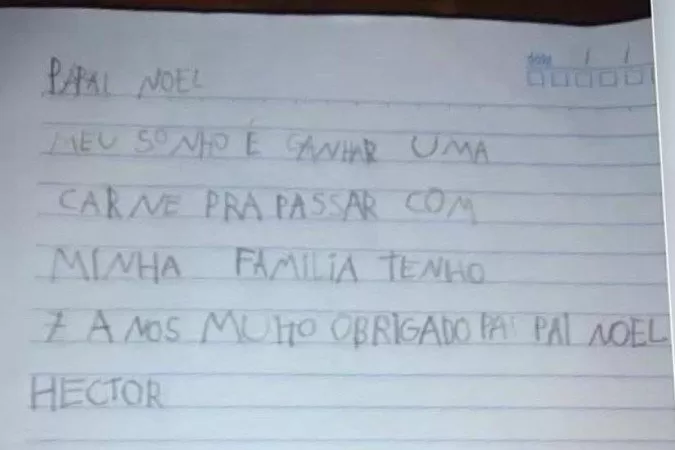 data / /
PAPAI NOEL
MEU SONHO É GANHAR UMA
CARNE PRA PASSAR COM
MINHA FAMILIA TENHO
7 ANOS MUITO OBRIGADO PAPAI NOEL
HECTOR